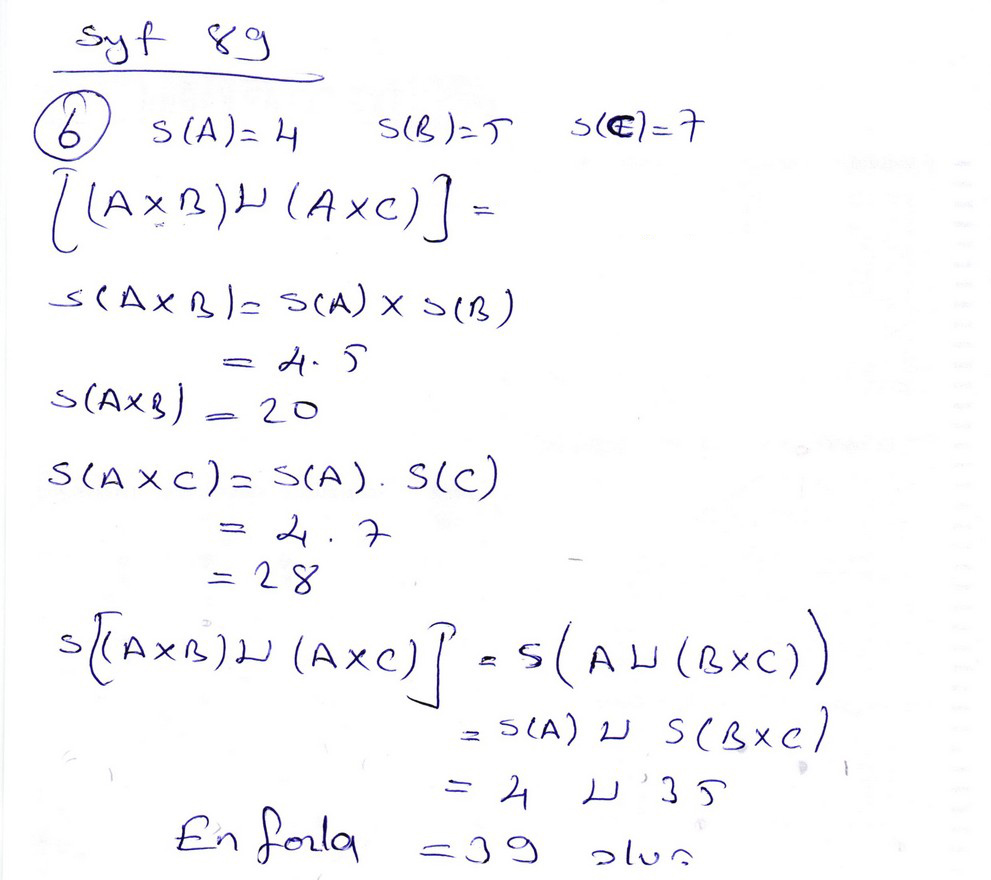 Syf 89
6 S(A)=4 S(B)=5 S(C)=7
[(AxB)∪(AxC)] =
S(AxB)= S(A) x S(B)
= 4.5
S(AxB) = 20
S(AxC)= S(A). S(C)
= 4.7
= 28
S[(AxB)∪(AxC)] = S(A∪(BxC))
= S(A) ∪ S(BxC)
= 4 ∪ 35
En fazla = 39 olur